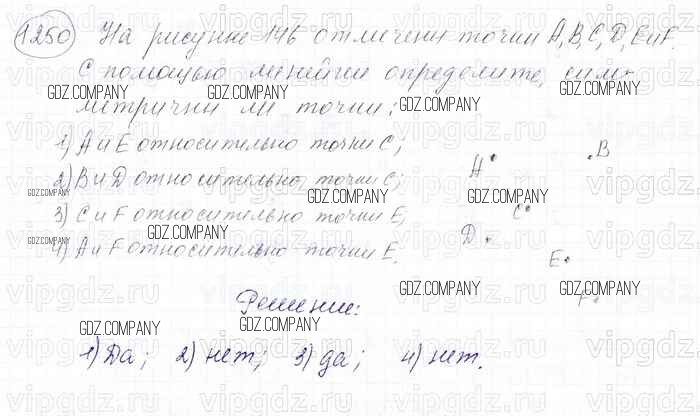 1250 На рисунке 146 отмечены точки A, B, C, D, E и F.
С помощью линейки определите, сим-
метричны ли точки:
1) A и E относительно точки C;
2) B и D относительно точки C;
3) C и F относительно точки E;
4) A и F относительно точки E.
A
B
C
D
E
F
Решение:
1) Да; 2) нет; 3) да; 4) нет.
GDZ.COMPANY
vipgdz